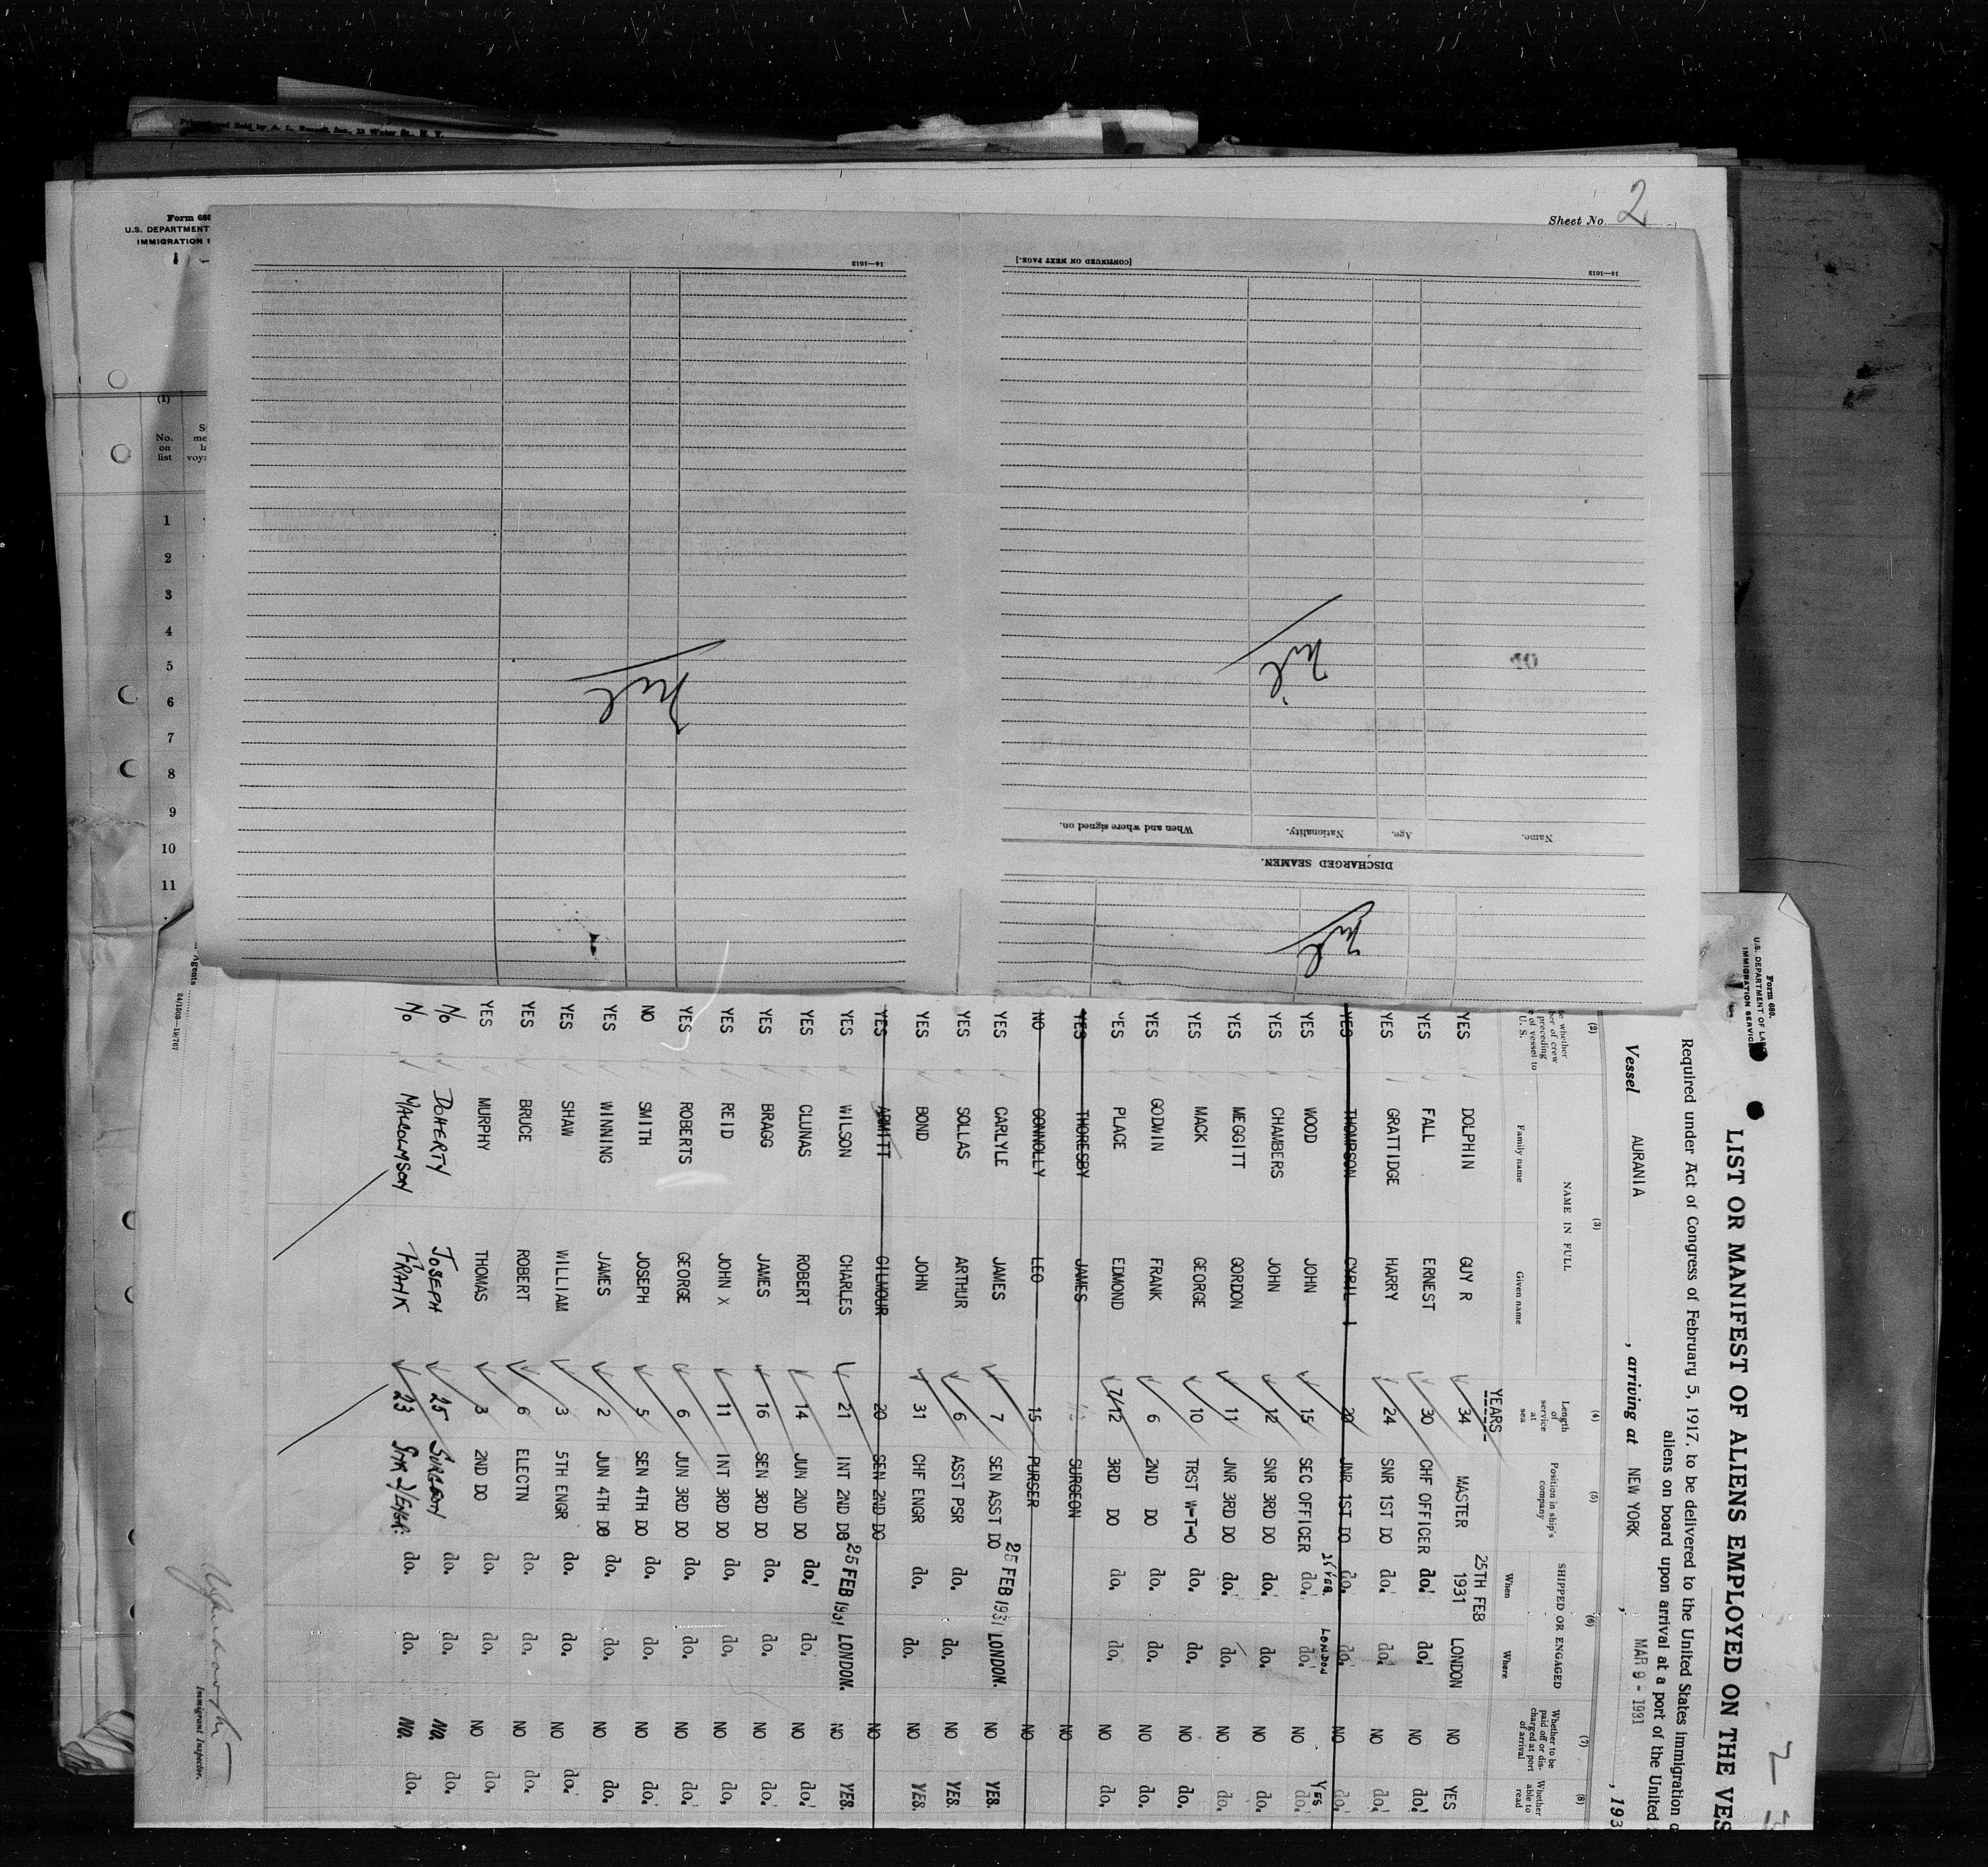 Form 680
U.S. DEPARTMENT
IMMIGRATION
Sheet No. 2
(1)
No.
on
list
1
2
3
4
5
6
7
8
9
10
11
14—1613
[CONTINUED ON NEXT PAGE.]
14—1613
nil
nil
When and where signed on.
Nationality.
Age.
Name.
DISCHARGED SEAMEN.
nil
Form 680.
U.S. DEPARTMENT OF LABOR
IMMIGRATION SERVICE
LIST OR MANIFEST OF ALIENS EMPLOYED ON THE VES
Required under Act of Congress of February 5, 1917, to be delivered to the United States immigration
aliens on board upon arrival at a port of the United
Vessel AURANIA , arriving at NEW YORK , MAR 9 - 1931 , 193
(2) (3) (4) (5) (6) (7) (8)
NAME IN FULL
Family name Given name
Length of service at sea
Position in ship's company
SHIPPED OR ENGAGED
When Where
Whether to be paid off or discharged at port of arrival
Whether able to read
YEARS
YES DOLPHIN GUY R 34 MASTER 25TH FEB 1931 LONDON NO YES
YES FALL ERNEST 30 CHF OFFICER do. do. NO do.
YES GRATTIDGE HARRY 24 SNR 1ST DO do. do. NO do.
YES THOMPSON CYRIL 20 JNR 1ST DO do. do. NO do.
YES WOOD JOHN 15 SEC OFFICER do. LONDON do. NO YES do.
YES CHAMBERS JOHN 12 SNR 3RD DO do. do. NO do.
YES MEGGITT GORDON 11 JNR 3RD DO do. do. NO do.
YES MACK GEORGE 10 TRST W=T=O do. do. NO do.
YES GODWIN FRANK 6 2ND DO do. do. NO do.
YES PLACE EDMOND 7/12 3RD DO do. do. NO do.
YES THORESBY JAMES SURGEON NO
NO CONNOLLY LEO 15 PURSER NO
YES CARLYLE JAMES 7 SEN ASST DO 25 FEB 1931 LONDON. NO YES.
YES SOLLAS ARTHUR 6 ASST PSR do. do. NO YES.
YES BOND JOHN 31 CHF ENGR do. do. NO YES.
YES ARMITT GILMOUR 20 SEN 2ND DO NO
YES WILSON CHARLES 21 INT 2ND DO 25 FEB 1931 LONDON. NO YES.
YES CLUNAS ROBERT 14 JUN 2ND DO do. do. NO do.
YES BRAGG JAMES 16 SEN 3RD DO do. do. NO do.
YES REID JOHN X 11 INT 3RD DO do. do. NO do.
YES ROBERTS GEORGE 6 JUN 3RD DO do. do. NO do.
NO SMITH JOSEPH 5 SEN 4TH DO do. do. NO do.
YES WINNING JAMES 2 JUN 4TH DO do. do. NO do.
YES SHAW WILLIAM 3 5TH ENGR do. do. NO do.
YES BRUCE ROBERT 6 ELECTN do. do. NO do.
YES MURPHY THOMAS 3 2ND DO do. do. NO do.
No DOHERTY JOSEPH 25 SURGEON do. do. NO. do.
No MALCOLMSON FRANK 23 do. do. NO. do.
Immigrant Inspector.
Agents